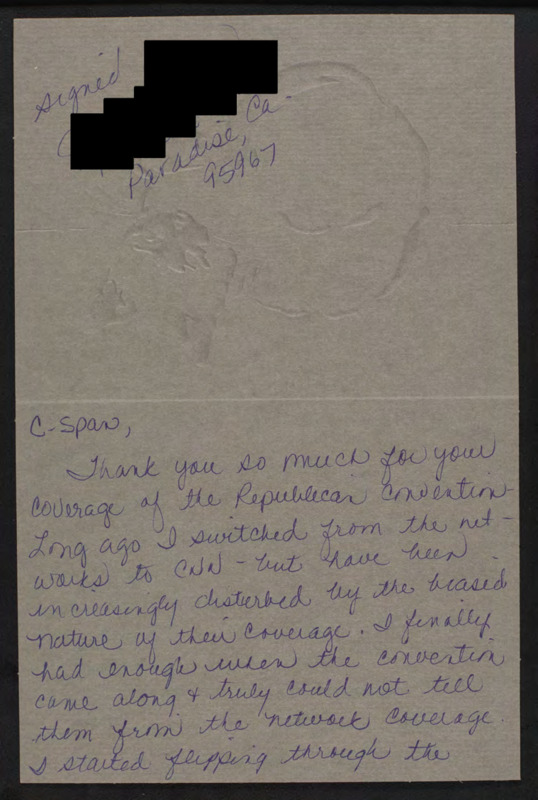 signed
Paradise, Ca.
95967
C-Span,
Thank you so much for your
coverage of the Republican Convention.
Long ago I switched from the net-
works to CNN - but have been
increasingly disturbed by the biased
nature of their coverage. I finally
had enough when the convention
came along & truly could not tell
them from the network coverage.
I started flipping through the